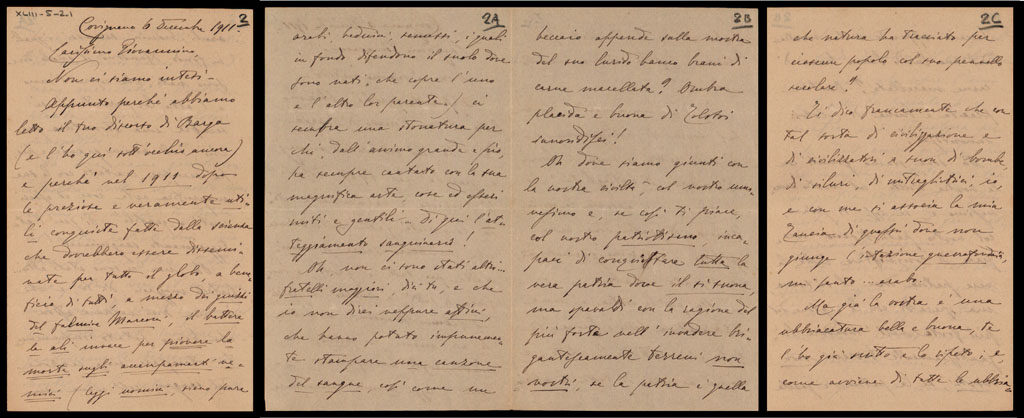 XLIII-5-2.1
2
Covignano 6 dicembre 1911-
Carissimo Giovannino
Non ci siamo intesi-
Appunto perché abbiamo
letto il tuo discorso di Barga
(e l'ho qui sott'occhio ancora)
e perché nel 1911 dopo
le preziose e veramente uti-
li conquiste fatte dalla scienza
che dovrebbero essere dissemi-
nate per tutto il globo a bene-
ficio di tutti, a mezzo dei guizzi
del fulmine Marconi, il battere
le ali invece per piovere la
morte sugli accampamenti ne-
mici (leggi uomini, siano pure
2A
arabi, beduini, senussi, i quali
in fondo difendono il suolo dove
sono nati, che copre l'uno
e l'altro lor parente-) ci
sembra una stonatura per
chi dall'animo grande e pio,
ha sempre cantato con la sua
magnifica arte, cose ed esseri
miti e gentili- Di qui l'at-
teggiamento sanguinario!
Oh, non ci sono stati altri
fratelli maggiori, di te, e che
io non direi neppure affini,
che hanno potuto impunemen-
te stampare una canzone
del sangue, così come un
2B
beccaio appende sulla mostra
del suo lurido banco brani di
carne macellata? Ombra
placida e buona di Tolstoi
inorridisci!
Oh dove siamo giunti con
la nostra civiltà- col nostro uma-
nesimo e, se così ti piace,
col nostro patriottismo, inca-
paci di conquistare tutta la
vera patria dove il sì suona,
ma spavaldi con la ragione del
più forte nell' invadere bri-
gantescamente terreni non
nostri, se la patria è quella
2C
che natura ha tracciato per
ciascun popolo col suo pennello
secolare?
Ti dico francamente che con
tal sorta di civilizzazione e
di civilizzatori a suon di bombe
di siluri, di mitragliatrici, io,
e con me si associa la mia
di questi dove non
giunge
mi sento... arabo.
Ma già la vostra è una
ubbriacatura bella e buona, te
l'ho già scritto e lo ripeto; e,
come avviene di tutte le ubbria-